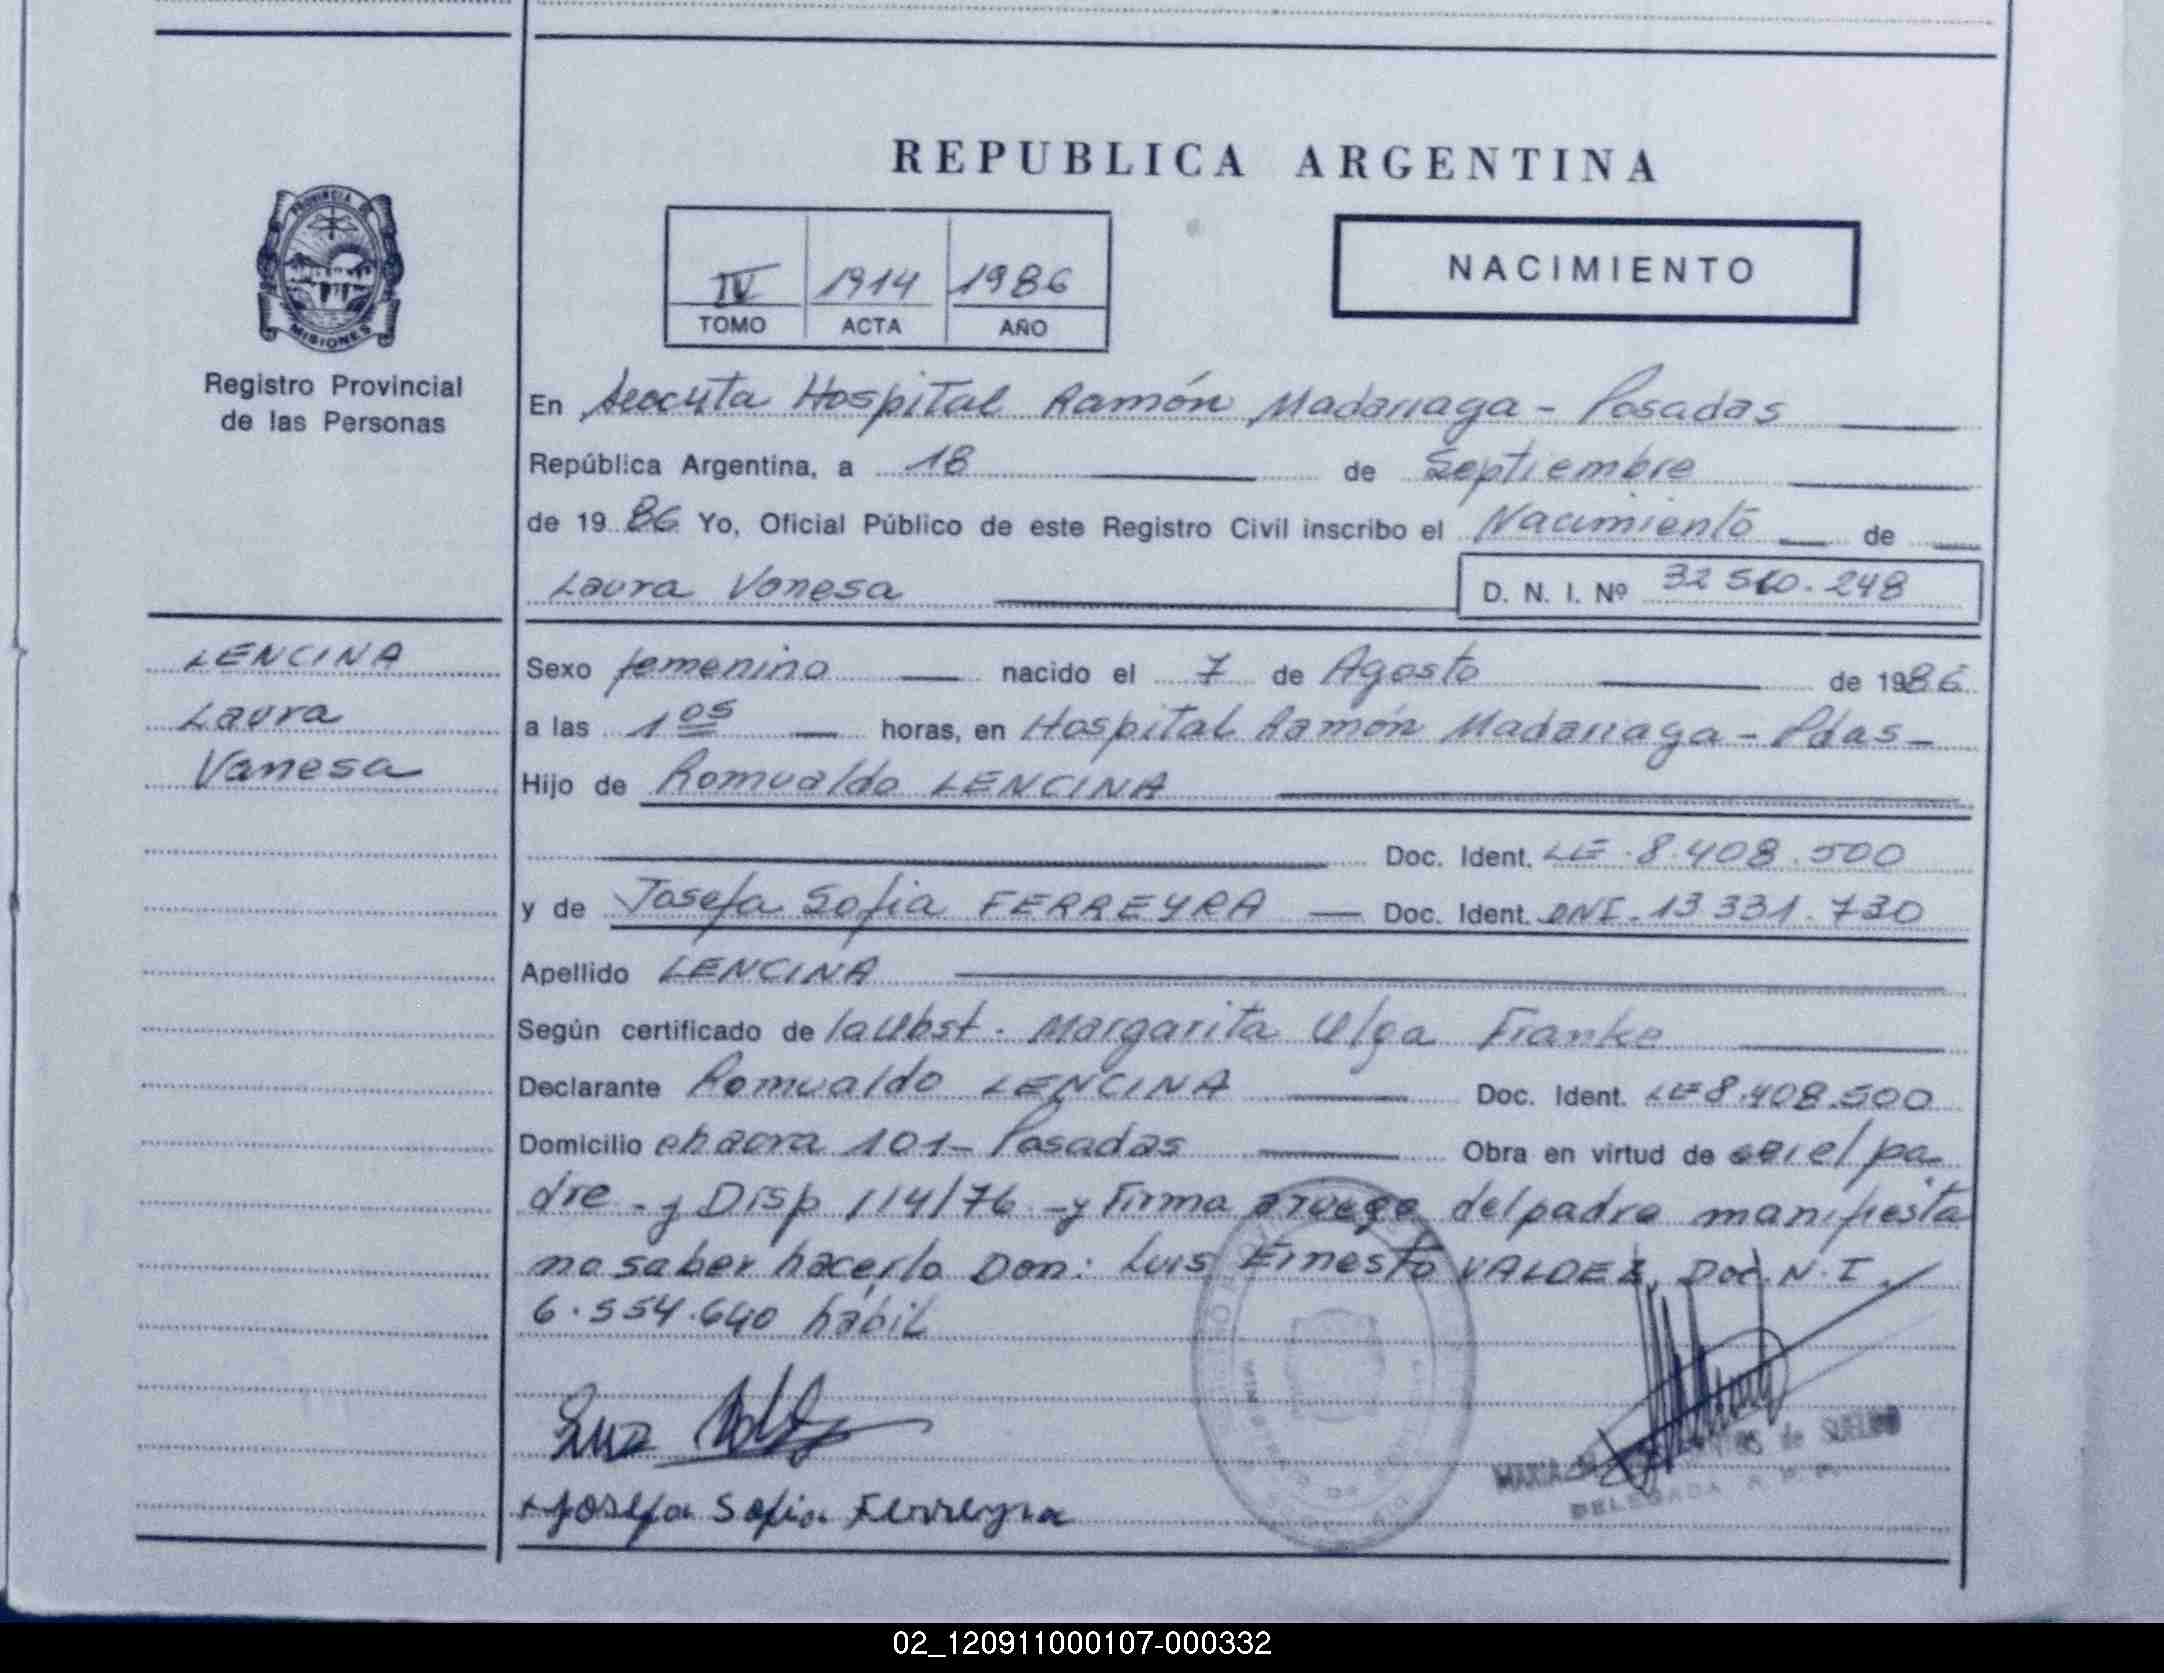 REPUBLICA ARGENTINA
PROVINCIA DE
MISIONES
Registro Provincial
de las Personas
IV 1914 1986
TOMO ACTA AÑO
NACIMIENTO
En Hospital Ramón Madariaga - Posadas
República Argentina, a 18 de Septiembre
de 1986 Yo, Oficial Público de este Registro Civil inscribo el Nacimiento de
Laura Vanesa
D. N. I. Nº 248
LENCINA
Laura
Vanesa
Sexo femenino nacido el 7 de Agosto de 1986
a las 1 05 horas, en Hospital Ramón Madariaga - Pdas -
Hijo de Romualdo LENCINA
Doc. Ident. LE 8.408.500
y de Josefa Sofia FERREYRA Doc. Ident. DNI. 13 331.730
Apellido LENCINA
Según certificado de la Obst. Margarita Olga Franke
Declarante Romualdo LENCINA Doc. Ident. LE 8.408.500
Domicilio chacra 101 - Posadas Obra en virtud de ser el pa
dre - y Disp 114/76 - y Firma a ruego del padre manifiesta
no saber hacerlo Don: Luis Ernesto VALDEZ, Doc. N. I.
6.554.640 hábil
Josefa Sofia Ferreyra
MARIA de SUELDO
DELEGADA
02_120911000107-000332